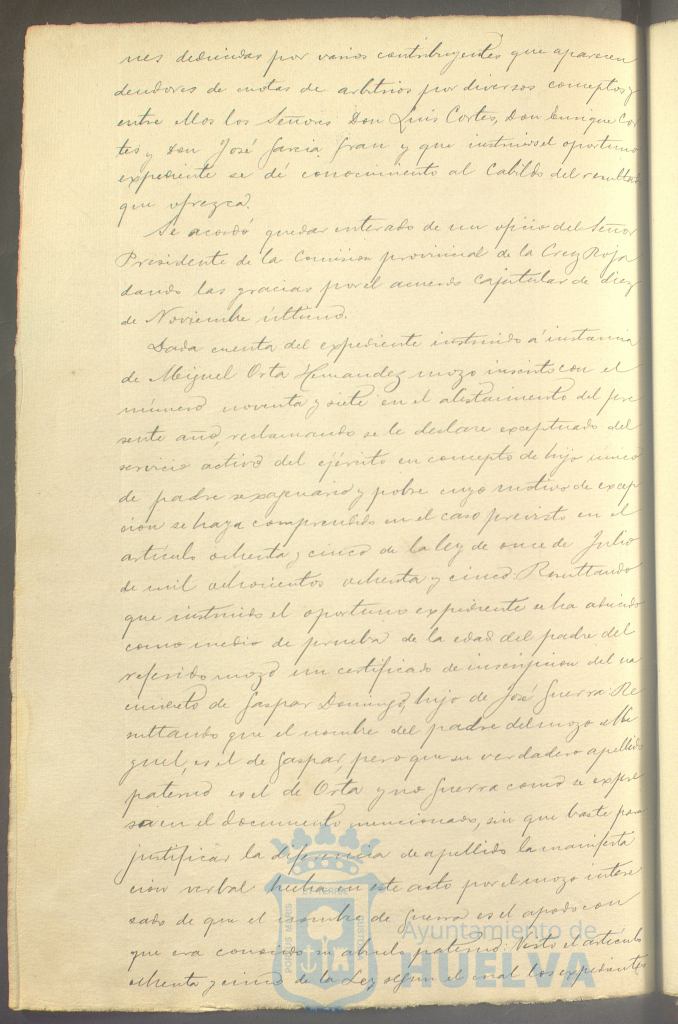 nes deducidas por varios contribuyentes que aparecen
deudores de cuotas de arbitrios por diversos conceptos y
entre ellos los Señores Don Luis Cortes, Don Enrique Cor
tes y Don José Garcia Gran y que instruido el oportuno
expediente se dé conocimiento al Cabildo del resultado
que ofrezca.
Se acordó quedar enterado de un oficio del Señor
Presidente de la Comision provincial de la Cruz Roja
dando las gracias por el acuerdo Capitular de diez
de Noviembre último.
Dada cuenta del expediente instruido á instancia
de Miguel Orta Hernandez mozo inscrito con el
número noventa y siete en el alistamiento del pre
sente año, reclamando se le declare exceptuado del
servicio activo del ejército en concepto de hijo único
de padre sexagenario y pobre cuyo motivo de excep
cion se haya comprendido en el caso previsto en el
artículo ochenta y cinco de la ley de once de Julio
de mil ochocientos ochenta y cinco: Resultando
que instruido el oportuno expediente se ha aducido
como medio de prueba de la edad del padre del
referido mozo un certificado de inscripcion del na
cimiento de Gaspar Domingo, hijo de José Guerra: Re
sultando que el nombre del padre del mozo Mi
guel, es el de Gaspar, pero que su verdadero apellido
paterno es el de Orta y no Guerra como se expre
sa en el documento mencionado, sin que baste para
justificar la diferencia de apellido la manifesta
cion verbal hecha en este acto por el mozo intere
sado de que el nombre de Guerra es el apodo con
que era conocido su abuelo paterno: Visto el artículo
ochenta y cinco de la Ley segun el cual los expedientes
Ayuntamiento de
HUELVA